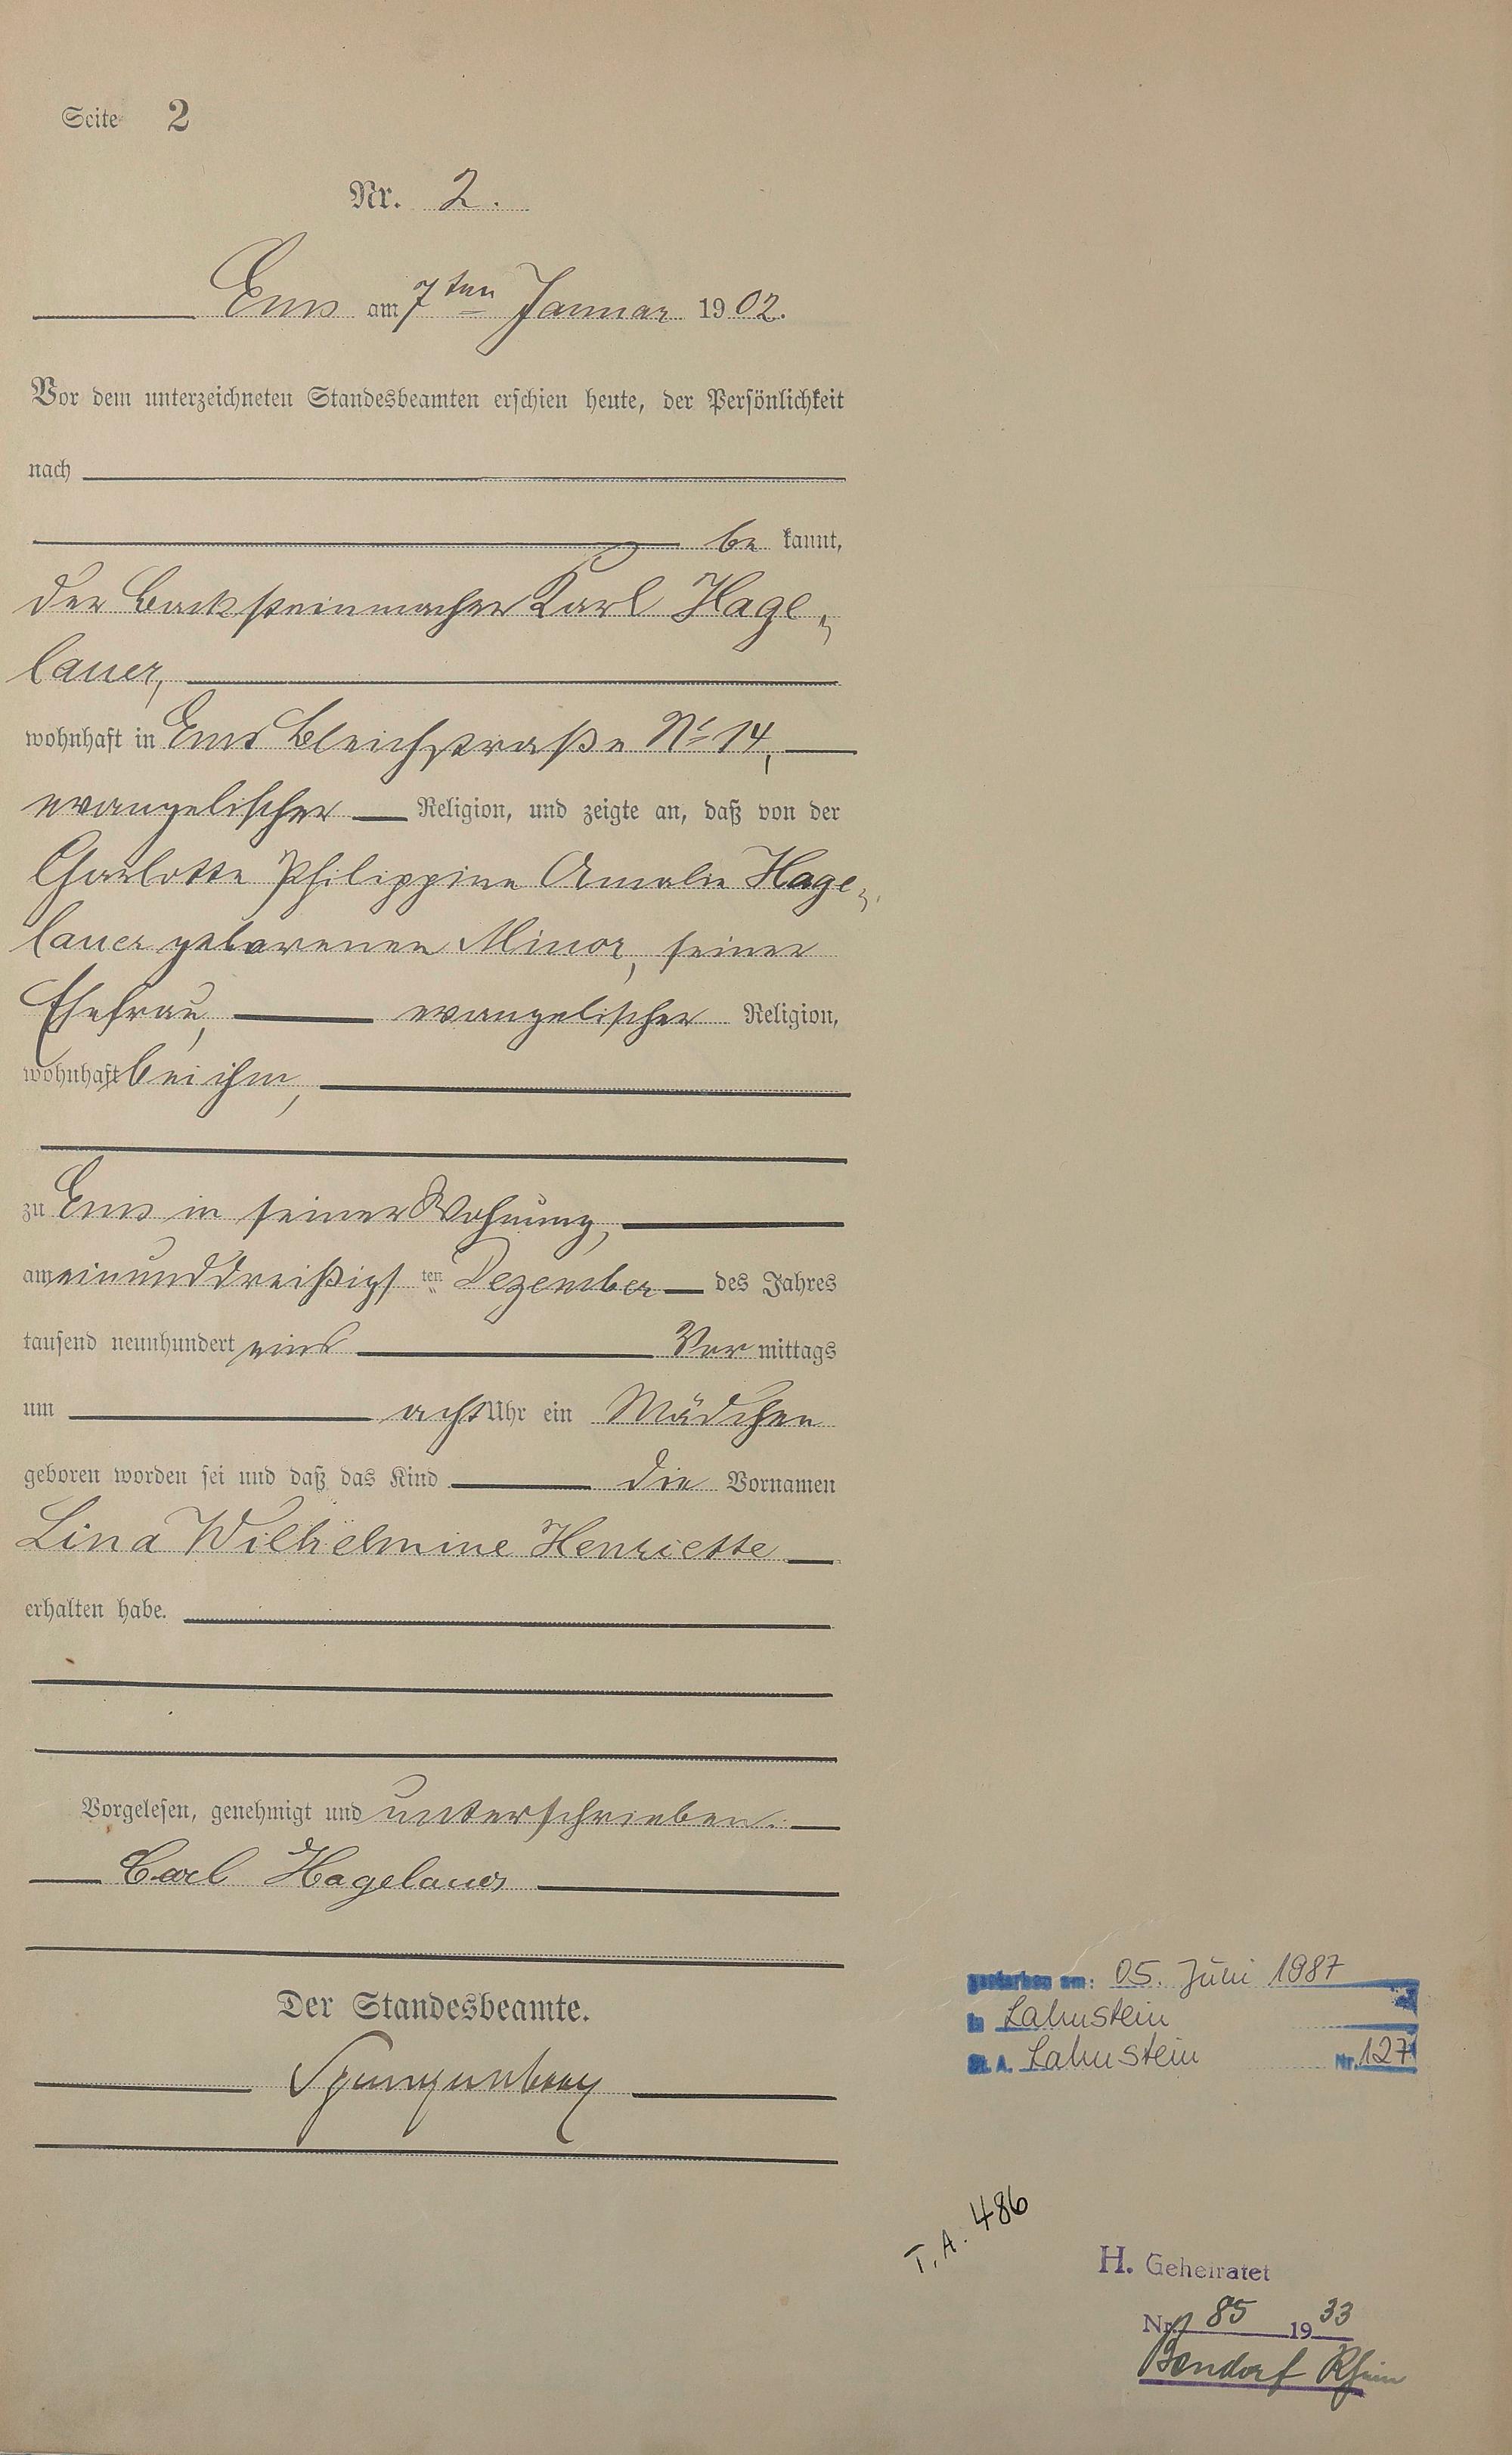 Seite 2
Nr. 2.
Ems am 7ten Januar 1902.
Vor dem unterzeichneten Standesbeamten erschien heute, der Persönlichkeit
nach
be kannt,
der Backsteinmacher Karl Hage„
lauer,
wohnhaft in Ems Bleichstraße No 14,
evangelischer Religion, und zeigte an, daß von der
Charlotte Philippine Amalie Hage„
lauer geborenen Minor, seiner
Ehefrau, evangelischer Religion,
wohnhaft bei ihm,
zu Ems in seiner Wohnung,
am einunddreißigsten Dezember des Jahres
tausend neunhundert eins Vor mittags
um acht Uhr ein Mädchen
geboren worden sei und daß das Kind die Vornamen
Lina Wilhelmine Henriette
erhalten habe.
Vorgelesen, genehmigt und unterschrieben.
Carl Hagelauer
Der Standesbeamte.
Spangenberg
gestorben am: 05. Juni 1987
in Lahnstein
St. A. Lahnstein Nr. 127
T. A. 486
H. Geheiratet
Nr. 85 1933
Bendorf Rhein